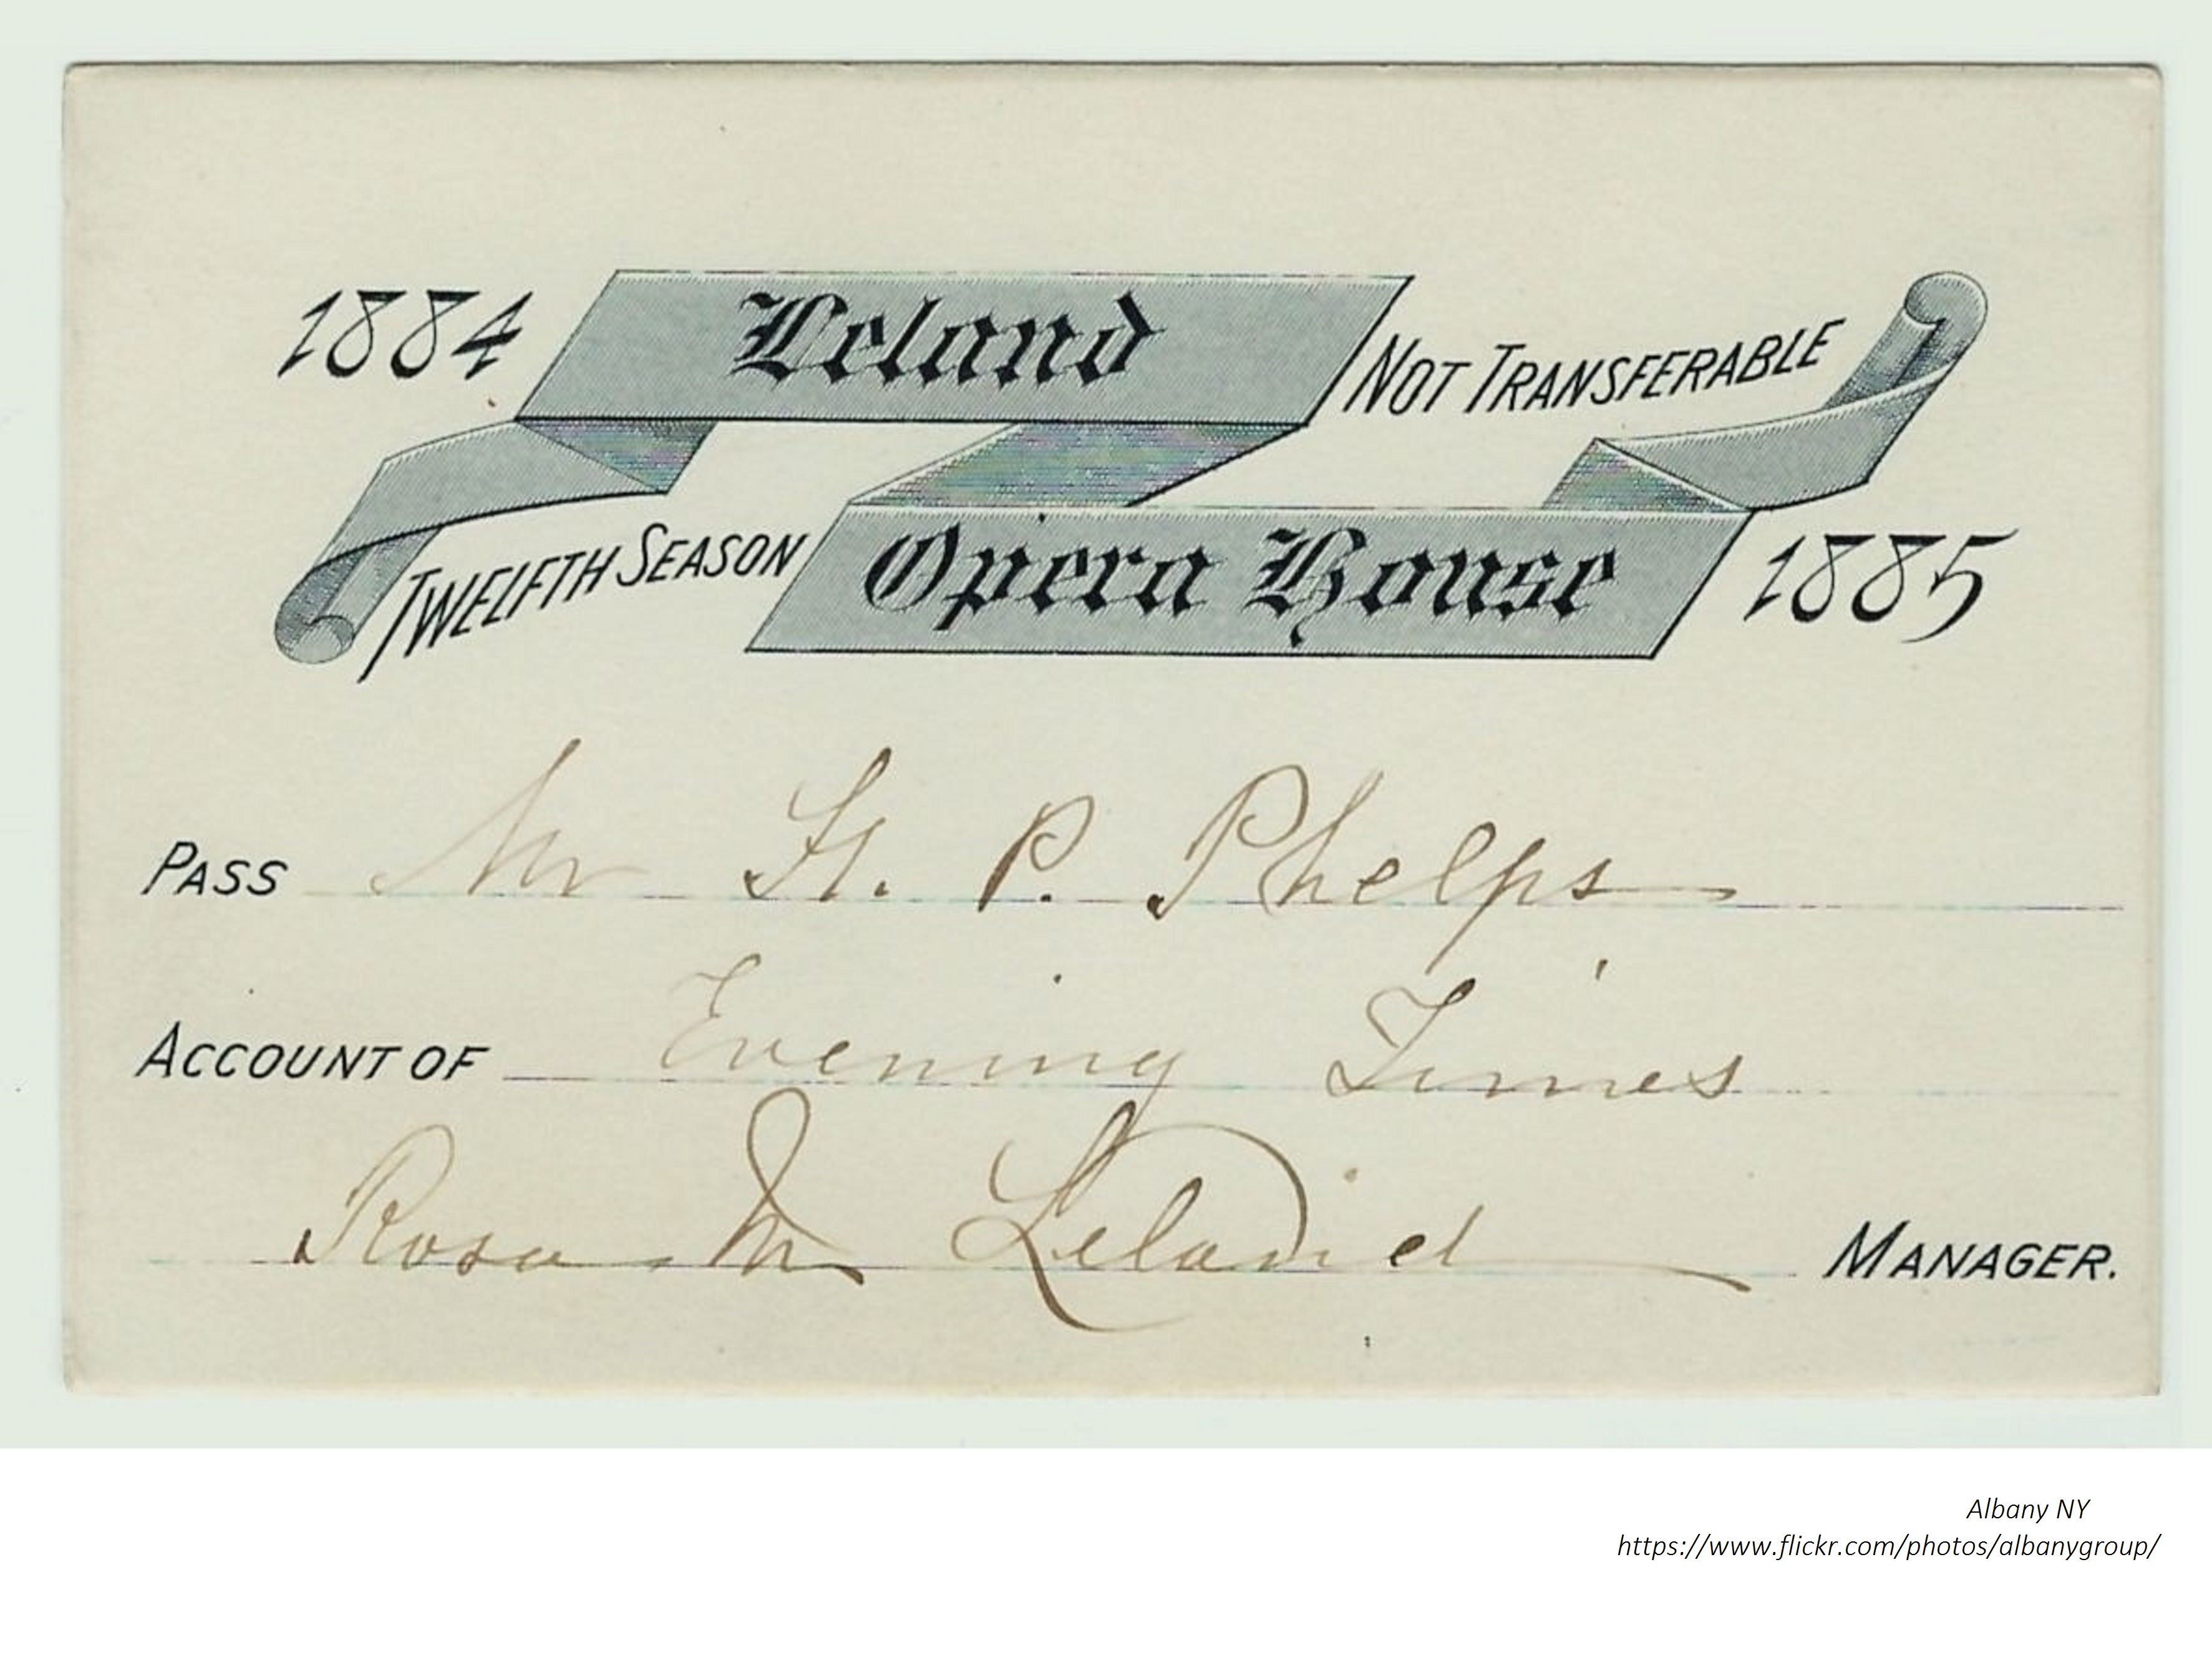 1884 Leland NOT TRANSFERABLE
TWELFTH SEASON Opera House 1885
PASS Mr H. P. Phelps
ACCOUNT OF Evening Times
Rosa M Leland MANAGER.
Albany NY
https://www.flickr.com/photos/albanygroup/